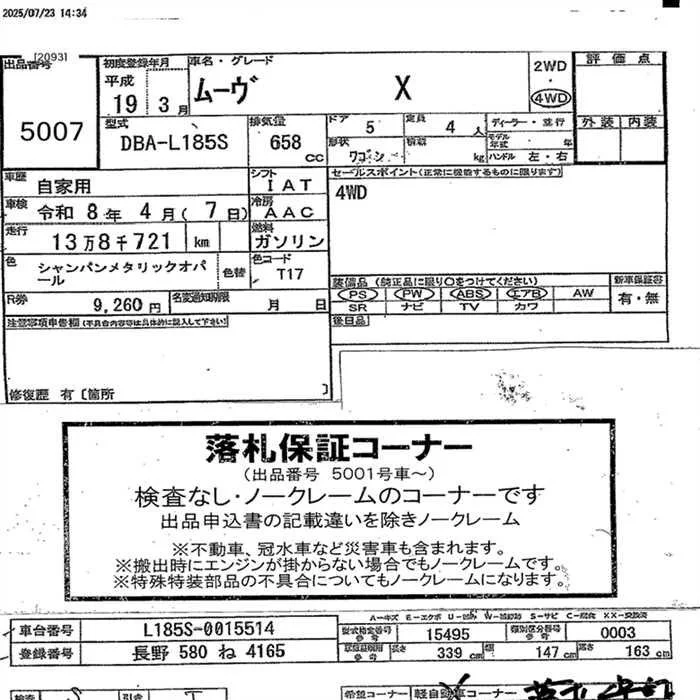 2025/07/23 14:34
[2093]
出品番号
5007
初度登録年月
平成
19 3月
車名・グレード
ムーヴ X
2WD
・
4WD
評価点
外装 内装
型式
DBA-L185S
排気量
658 cc
ドア 5
定員 4 人
ディーラー・並行
形状
ワゴン
積載 kg
モデル年式 年
ハンドル 左・右
車歴
自家用
シフト
IAT
セールスポイント(正常に機能するものに限ります)
4WD
車検 令和 8年 4月( 7日)
冷房
AAC
走行
13万8千721 km
燃料
ガソリン
色
シャンパンメタリックオパール
色替
色コード
T17
装備品 (純正品に限り○をつけてください)
新車保証書
PS PW ABS エアB AW
有・無
SR ナビ TV カワ
R券
9,260 円
名変通知期限
月 日
後日品
注意事項申告欄(不具合内容等は具体的に記入して下さい!)
修復歴 有〔箇所 〕
落札保証コーナー
(出品番号 5001号車~)
検査なし・ノークレームのコーナーです
出品申込書の記載違いを除きノークレーム
※不動車、冠水車など災害車も含まれます。
※搬出時にエンジンが掛からない場合でもノークレームです。
※特殊特装部品の不具合についてもノークレームになります。
車台番号
L185S-0015514
型式指定番号
参考
15495
類別区分番号
参考
0003
登録番号
長野 580 ね 4165
長さ 339 cm
幅 147 cm
高さ 163 cm
希望コーナー
軽自動車コーナー